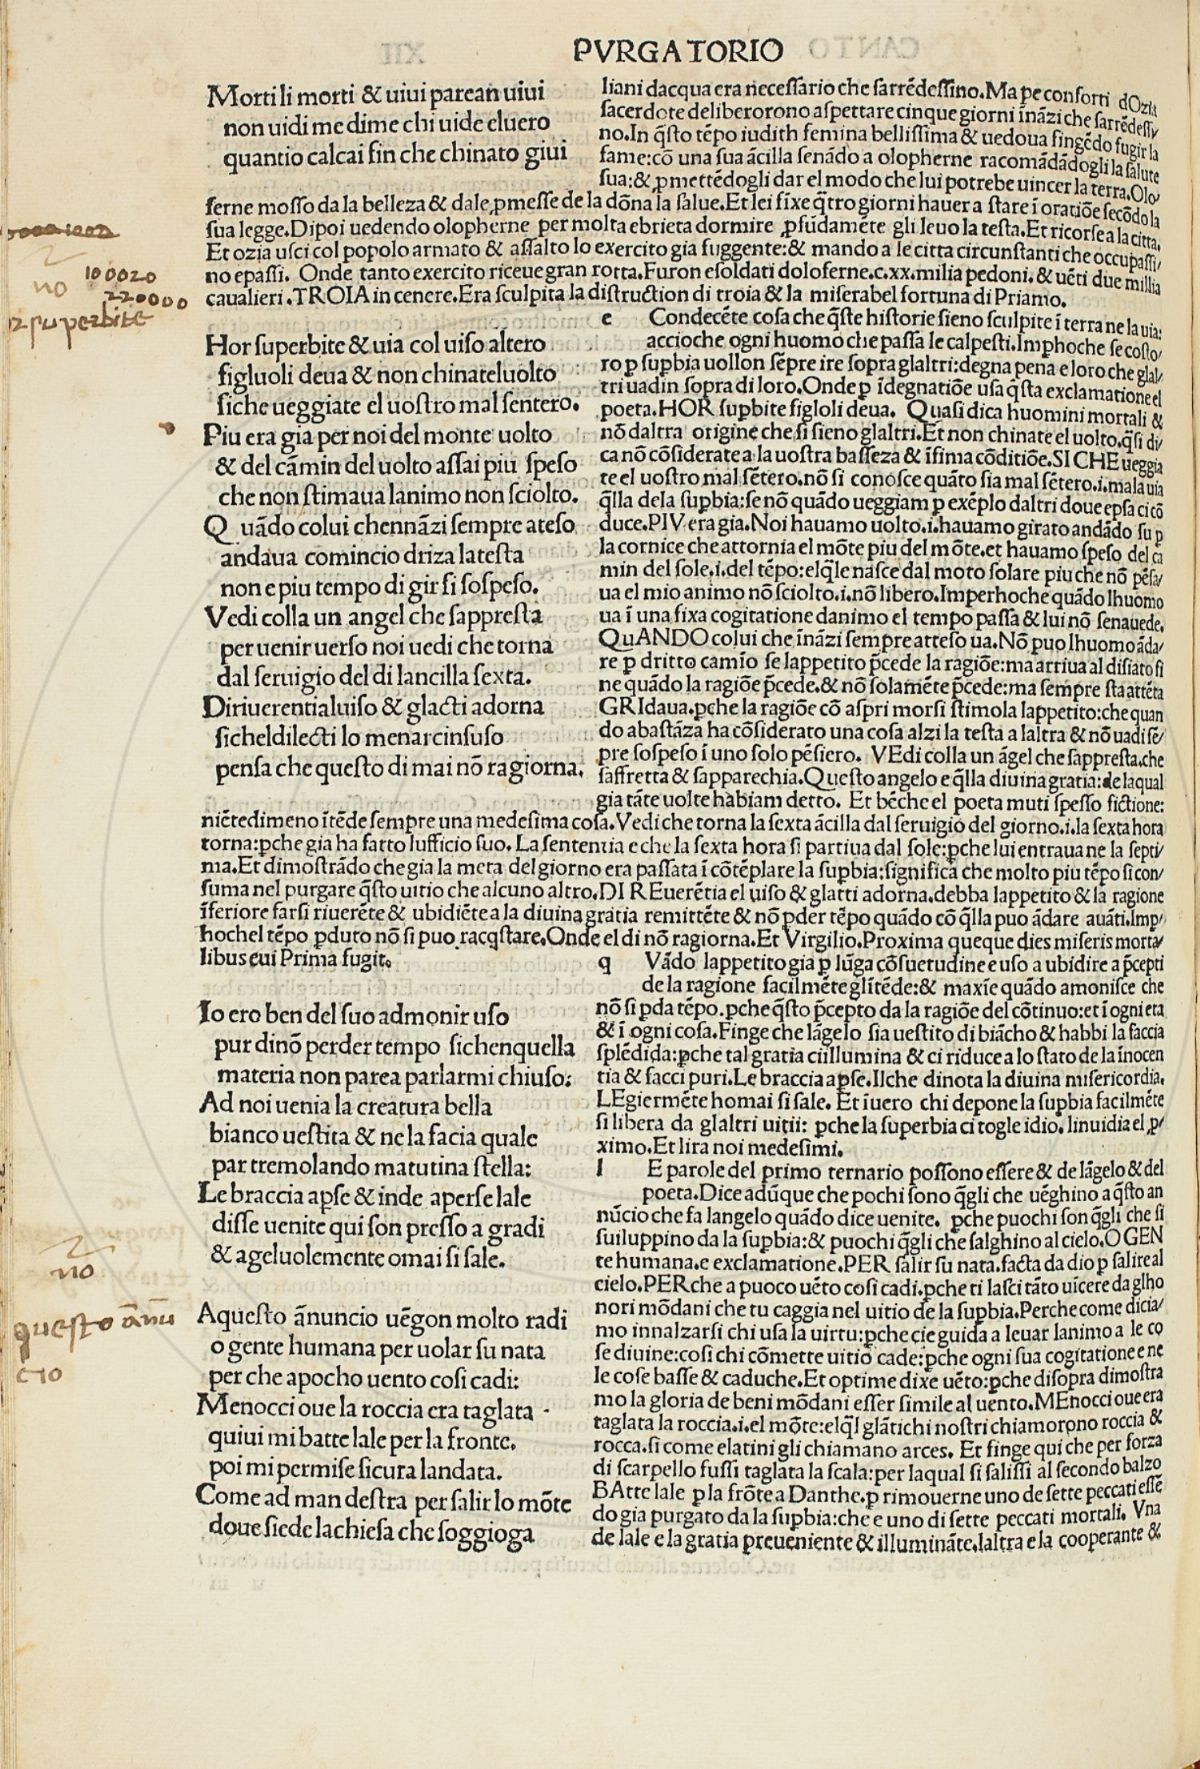 PVRGATORIO
Morti li morti & uiui parean uiui
non uidi me dime chi uide eluero
quantio calcai fin che chinato giui
liani dacqua era necessario che sarrēdessino. Ma pe conforti dOzia
sacerdote deliberorono aspettare cinque giorni ināzi che sarrēdessi/
no. In q̄sto tēpo iudith femina bellissima & uedoua fingēdo fugir la
fame: cō una sua ācilla senādo a olopherne racomādādogli la salute
sua: & ꝓmettēdogli dar el modo che lui potrebe uincer la terra. Olo/
ferne mosso da la belleza & dale ꝓmesse de la dōna la salue. Et lei fixe q̄tro giorni hauer a stare ī oratiōe secōdo la
sua legge. Dipoi uedendo olopherne per molta ebrieta dormire ꝓfudamēte gli leuo la testa. Et ricorse a la citta.
Et ozia usci col popolo armato & assalto lo exercito gia fuggente: & mando a le citta circunstanti che occupassi/
no epassi. Onde tanto exercito riceue gran rotta. Furon esoldati doloferne .c.xx. milia pedoni. & uēti due millia
caualieri. TROIA in cenere. Era sculpita la distruction di troia & la miserabel fortuna di Priamo.
100020
no
220000
superbite
Hor superbite & uia col uiso altero
figluoli deua & non chinateluolto
siche ueggiate el uostro mal sentero.
Piu era gia per noi del monte uolto
& del cāmin del uolto assai piu speso
che non stimaua lanimo non sciolto.
Quādo colui chennāzi sempre ateso
andaua comincio driza latesta
non e piu tempo di gir si sospeso.
Vedi colla un angel che sappresta
per uenir uerso noi uedi che torna
dal seruigio del di lancilla sexta.
Diriuerentialuiso & glacti adorna
sicheldilecti lo menarcinsuso
pensa che questo di mai nō ragiorna.
e Condecēte cosa che q̄ste historie sieno sculpite ī terra ne la uia:
accioche ogni huomo che passa le calpesti. Imphoche se costo/
ro ꝑ supbia uollon sēpre ire sopra glaltri: degna pena e loro che glal/
tri uadin sopra di loro. Onde ꝑ īdegnatiōe usa q̄sta exclamatione el
poeta. HOR supbite figloli deua. Quasi dica huomini mortali &
nō daltra origine che si sieno glaltri. Et non chinate el uolto. q̄si di/
ca nō cōsiderate a la uostra basseza & īfima cōditiōe. SI CHE ueggia
te el uostro mal sētero. nō si conosce quāto sia mal sētero. i. mala uia
q̄lla dela supbia: se nō quādo ueggiam ꝑ exēplo daltri doue epsa ci cō
duce. PIV era gia. Noi hauamo uolto. i. hauamo girato andādo su ꝑ
la cornice che attornia el mōte piu del mōte. et hauamo speso del ca
min del sole. i. del tēpo: elq̄le nasce dal moto solare piu che nō pēsa/
ua el mio animo nō sciolto. i. nō libero. Imperhoche quādo lhuomo
ua ī una fixa cogitatione danimo el tempo passa & lui nō senauede.
QuANDO colui che ināzi sempre atteso ua. Nō puo lhuomo āda/
re ꝑ dritto camīo se lappetito p̄cede la ragiōe: ma arriua al disiato fi
ne quādo la ragiōe p̄cede. & nō solamēte p̄cede: ma sempre sta attēta
GRIdaua. ꝑche la ragiōe cō aspri morsi stimola lappetito: che quan
do abastāza ha cōsiderato una cosa alzi la testa a laltra & nō uadi sē/
pre sospeso ī uno solo pēsiero. VEdi colla un āgel che sappresta. che
saffretta & sapparechia. Questo angelo e q̄lla diuina gratia: de laqual
gia tāte uolte habiam detto. Et bēche el poeta muti spesso fictione:
niētedimeno ītēde sempre una medesima cosa. Vedi che torna la sexta ācilla dal seruigio del giorno. i. la sexta hora
torna: ꝑche gia ha fatto lufficio suo. La sententia e che la sexta hora si partiua dal sole: ꝑche lui entraua ne la septi/
ma. Et dimostrādo che gia la meta del giorno era passata ī cōtēplare la supbia: significā che molto piu tēpo si con/
suma nel purgare q̄sto uitio che alcuno altro. DI REuerētia el uiso & glatti adorna. debba lappetito & la ragione
īferiore farsi riuerēte & ubidiēte a la diuina gratia remittēte & nō ꝑder tēpo quādo cō q̄lla puo ādare auāti. Imp/
hochel tēpo ꝑduto nō si puo racq̄stare. Onde el di nō ragiorna. Et Virgilio. Proxima queque dies miseris morta/
libus eui Prima fugit.
Io ero ben del suo admonir uso
pur dinō perder tempo sichenquella
materia non parea parlarmi chiuso:
Ad noi uenia la creatura bella
bianco uestita & ne la facia quale
par tremolando matutina stella:
Le braccia aꝑse & inde aperse lale
disse uenite qui son presso a gradi
& ageluolemente omai si sale.
no
questo ānu
cio
A questo ānuncio uēgon molto radi
o gente humana per uolar su nata
per che apocho uento cosi cadi:
Menocci oue la roccia era taglata
quiui mi batte lale per la fronte.
poi mi permise sicura landata.
Come ad man destra per salir lo mōte
doue siede lachiesa che soggioga
q Vādo lappetito gia ꝑ lūga cōsuetudine e uso a ubidire a p̄cepti
de la ragione facilmēte glītēde: & maxīe quādo amonisce che
nō si ꝑda tēpo. ꝑche q̄sto p̄cepto da la ragiōe del cōtinuo: et ī ogni eta
& ī ogni cosa. Finge che lāgelo sia uestito di biācho & habbi la faccia
splēdida: ꝑche tal gratia ciillumina & ci riduce a lo stato de la īnocen
tia & facci puri. Le braccia apse. Ilche dinota la diuina misericordia.
LEgiermēte homai si sale. Et īuero chi depone la supbia facilmēte
si libera da glaltri uitii: ꝑche la superbia ci togle idio. linuidia el ꝓ/
ximo. Et lira noi medesimi.
l E parole del primo ternario possono essere & de lāgelo & del
poeta. Dice adūque che pochi sono q̄gli che uēghino a q̄sto an
nūcio che fa langelo quādo dice uenite. ꝑche puochi son q̄gli che si
suiluppino da la supbia: & puochi q̄gli che salghino al cielo. O GEN
te humana. e exclamatione. PER salir su nata. facta da dio ꝑ salire al
cielo. PERche a puoco uēto cosi cadi. ꝑche ti lasci tāto uīcere da glho
nori mōdani che tu caggia nel uitio de la supbia. Perche come dicia/
mo innalzarsi chi usa la uirtu: ꝑche ciē guida a leuar lanimo a le co
se diuine: cosi chi cōmette uitio cade: ꝑche ogni sua cogitatione e ne
le cose basse & caduche. Et optime dixe uēto: ꝑche disopra dimostra
mo la gloria de beni mōdani esser simile al uento. MEnocci oue era
taglata la roccia. i. el mōte: elq̄l glātichi nostri chiamorono roccia &
rocca. si come elatini gli chiamano arces. Et finge qui che per forza
di scarpello fussi taglata la scala: per laqual si salissi al secondo balzo
BAtte lale ꝑ la frōte a Danthe. ꝑ rimouerne uno de sette peccati essē
do gia purgato da la supbia: che e uno di sette peccati mortali. Vna
de lale e la gratia preueniente & illumināte. laltra e la cooperante &